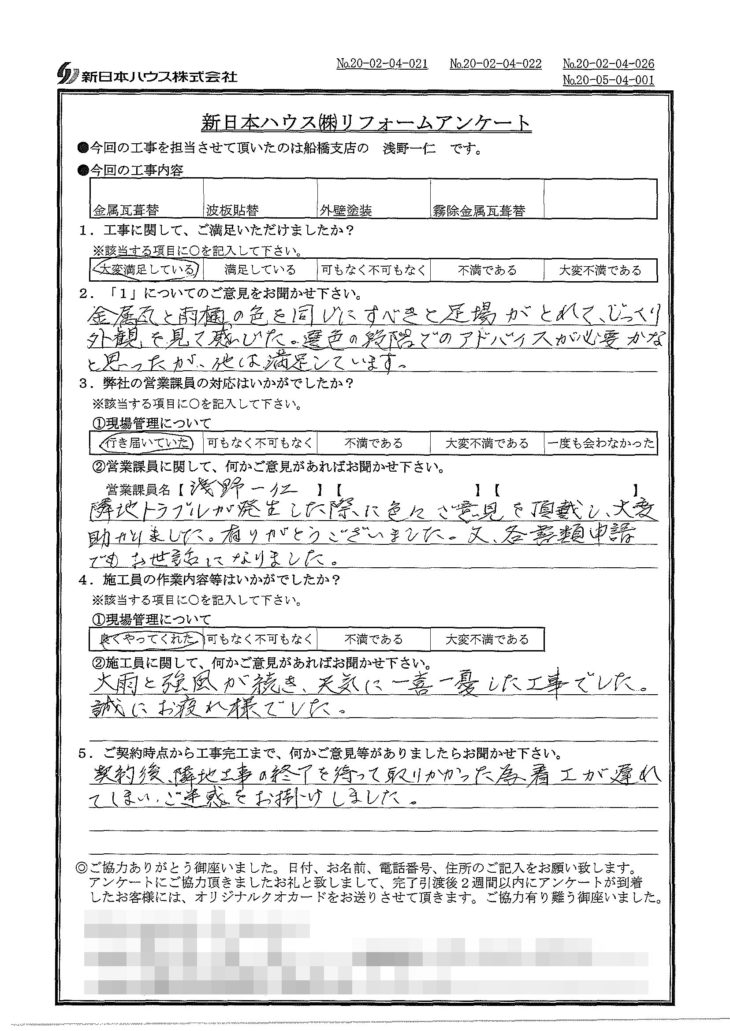 №20-02-04-021 №20-02-04-022 №20-02-04-026
№20-05-04-001
新日本ハウス株式会社
新日本ハウス㈱リフォームアンケート
●今回の工事を担当させて頂いたのは船橋支店の 浅野一仁 です。
●今回の工事内容
金属瓦葺替 波板貼替 外壁塗装 霧除金属瓦葺替
1．工事に関して、ご満足いただけましたか？
※該当する項目に○を記入して下さい。
大変満足している 満足している 可もなく不可もなく 不満である 大変不満である
2．「1」についてのご意見をお聞かせ下さい。
金属瓦と雨樋の色を同じにすべきと足場がとれて、じっくり
外観を見て感じた。選色の段階でのアドバイスが必要かな
と思ったが、他は満足しています。
3．弊社の営業課員の対応はいかがでしたか？
※該当する項目に○を記入して下さい。
①現場管理について
行き届いていた 可もなく不可もなく 不満である 大変不満である 一度も会わなかった
②営業課員に関して、何かご意見があればお聞かせ下さい。
営業課員名【浅野一仁 】【 】【 】
隣地トラブルが発生した際に色々ご意見を頂戴し、大変
助かりました。有りがとうございました。又、各書類申請
でもお世話になりました。
4．施工員の作業内容等はいかがでしたか？
※該当する項目に○を記入して下さい。
①現場管理について
良くやってくれた 可もなく不可もなく 不満である 大変不満である
②施工員に関して、何かご意見があればお聞かせ下さい。
大雨と強風が続き、天気に一喜一憂した工事でした。
誠にお疲れ様でした。
5．ご契約時点から工事完工まで、何かご意見等がありましたらお聞かせ下さい。
契約後、隣地工事の終了を待って取りかかった為、着工が遅れ
てしまい、ご迷惑をお掛けしました。
◎ご協力ありがとう御座いました。日付、お名前、電話番号、住所のご記入をお願い致します。
アンケートにご協力頂きましたお礼と致しまして、完了引渡後2週間以内にアンケートが到着
したお客様には、オリジナルクオカードをお送りさせて頂きます。ご協力有り難う御座いました。